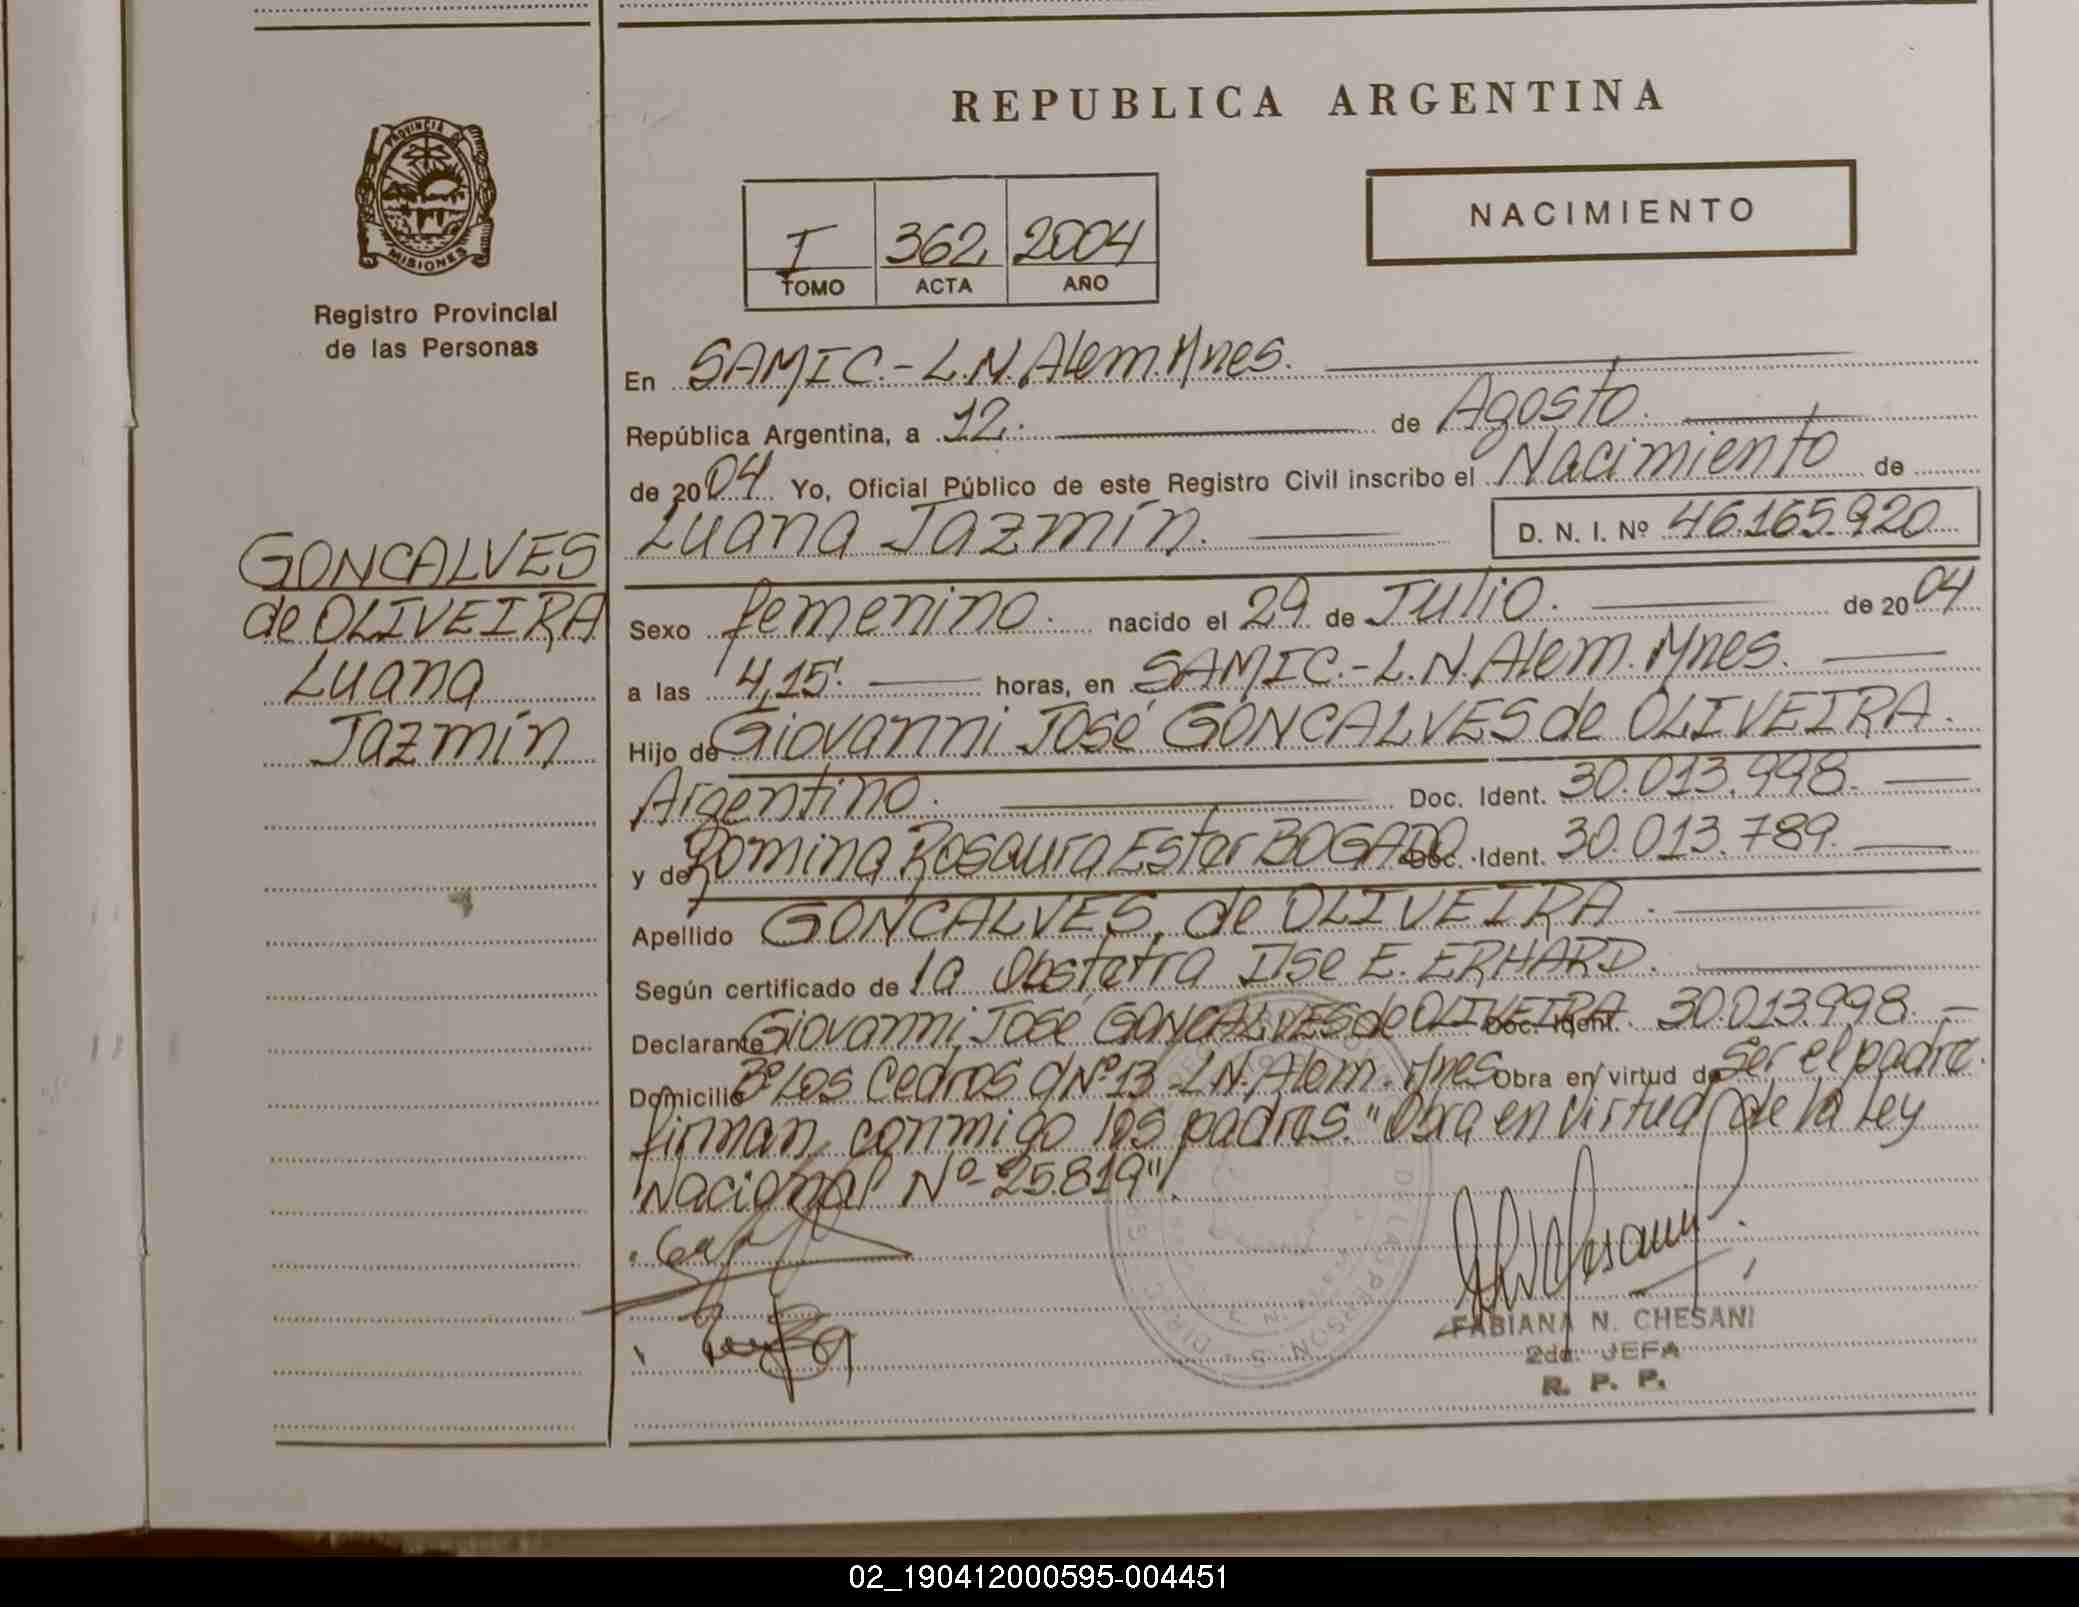 REPUBLICA ARGENTINA
PROVINCIA DE
MISIONES
Registro Provincial
de las Personas
NACIMIENTO
I 362 2004
TOMO ACTA AÑO
En SAMIC.-L.N.Alem.Mnes.
República Argentina, a 12. de Agosto.
de 2004 Yo, Oficial Público de este Registro Civil inscribo el Nacimiento de
Luana Jazmín. D. N. I. Nº 46.165.920
GONCALVES
de OLIVEIRA
Luana
Jazmín
Sexo femenino. nacido el 29 de Julio. de 2004
a las 4,15. horas, en SAMIC.-L.N.Alem.Mnes.
Hijo de Giovanni José GONCALVES de OLIVEIRA.
Argentino. Doc. Ident. 30.013.998.
y de Romina Rosaura Ester BOGADO Doc. Ident. 30.013.789.
Apellido GONCALVES de OLIVEIRA.
Según certificado de la Obstetra Ilse E. ERHARD.
Declarante Giovanni José GONCALVES de OLIVEIRA Doc. Ident. 30.013.998.
Domicilio Bº Los Cedros c/Nº 13 L.N.Alem. Mnes Obra en virtud de ser el padre.
firman conmigo los padres. "Obra en virtud de la Ley
Nacional Nº 25.819".
FABIANA N. CHESANI
2da. JEFA
R. P. P.
02_190412000595-004451